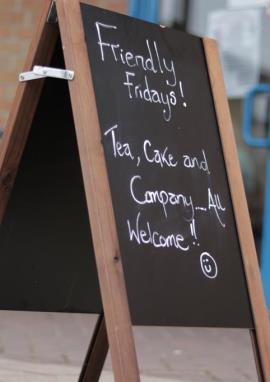 Friendly
Fridays!
Tea, Cake and
Company.... All
Welcome!!